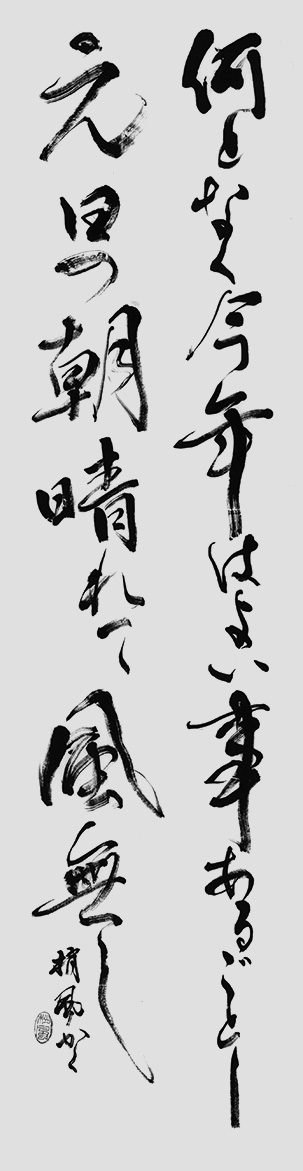 何となく今年はよい事あるごとし
元日の朝晴れて風無し
梢風かく